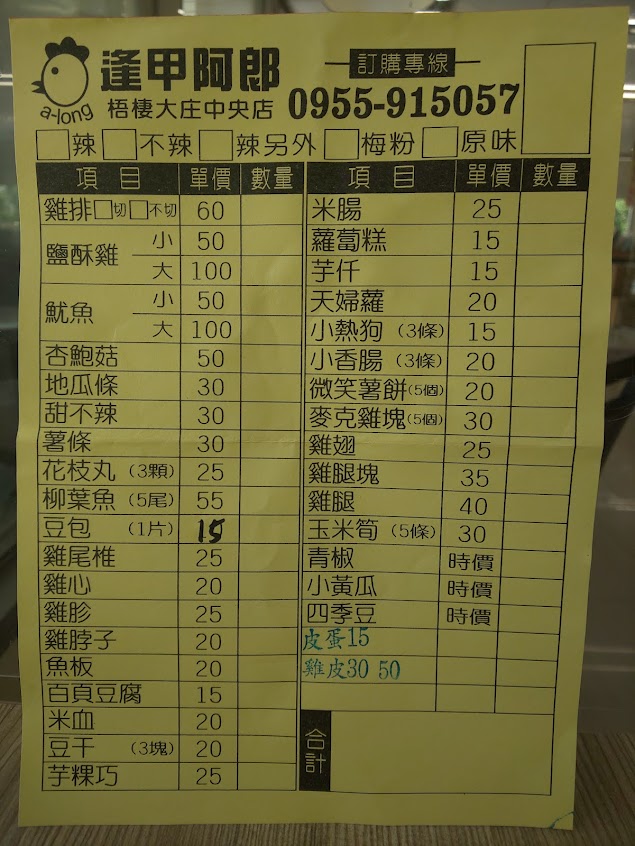 a-long
逢甲阿郎
梧棲大庄中央店
訂購專線
0955-915057
□辣 □不辣 □辣另外 □梅粉 □原味
項目 單價 數量
雞排□切□不切 60
鹽酥雞 小 50
大 100
魷魚 小 50
大 100
杏鮑菇 50
地瓜條 30
甜不辣 30
薯條 30
花枝丸(3顆) 25
柳葉魚(5尾) 55
豆包(1片) 15
雞尾椎 25
雞心 20
雞胗 25
雞脖子 20
魚板 20
百頁豆腐 15
米血 20
豆干(3塊) 20
芋粿巧 25
項目 單價 數量
米腸 25
蘿蔔糕 15
芋仟 15
天婦蘿 20
小熱狗(3條) 15
小香腸(3條) 20
微笑薯餅(5個) 20
麥克雞塊(5個) 30
雞翅 25
雞腿塊 35
雞腿 40
玉米筍(5條) 30
青椒 時價
小黃瓜 時價
四季豆 時價
皮蛋15
雞皮30 50
合計